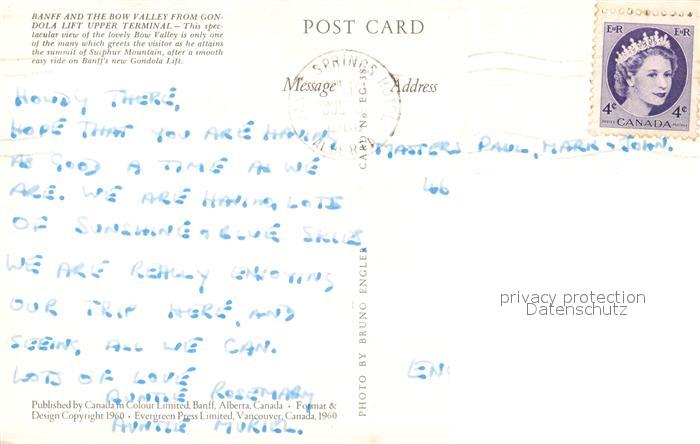 BANFF AND THE BOW VALLEY FROM GON-
DOLA LIFT UPPER TERMINAL — This spec-
tacular view of the lovely Bow Valley is only one
of the many which greets the visitor as he attains
the summit of Sulphur Mountain, after a smooth
easy ride on Banff's new Gondola Lift.
POST CARD
Message
Address
SPRINGS
EIIR EIIR
4¢ 4¢
CANADA
HOWDY THERE,
HOPE THAT YOU ARE HAVING
AS GOOD A TIME AS WE
ARE. WE ARE HAVING LOTS
OF SUNSHINE & BLUE SKIES
WE ARE REALLY ENJOYING
OUR TRIP HERE, AND
SEEING ALL WE CAN.
LOTS OF LOVE
AUNTIE ROSEMARY
AUNTIE MURIEL.
MASTERS PAUL, MARK & JOHN.
46
EN
CARD No. EG-18
PHOTO BY BRUNO ENGLER
privacy protection
Datenschutz
Published by Canada in Colour Limited, Banff, Alberta, Canada • Format &
Design Copyright 1960 • Evergreen Press Limited, Vancouver, Canada, 1960